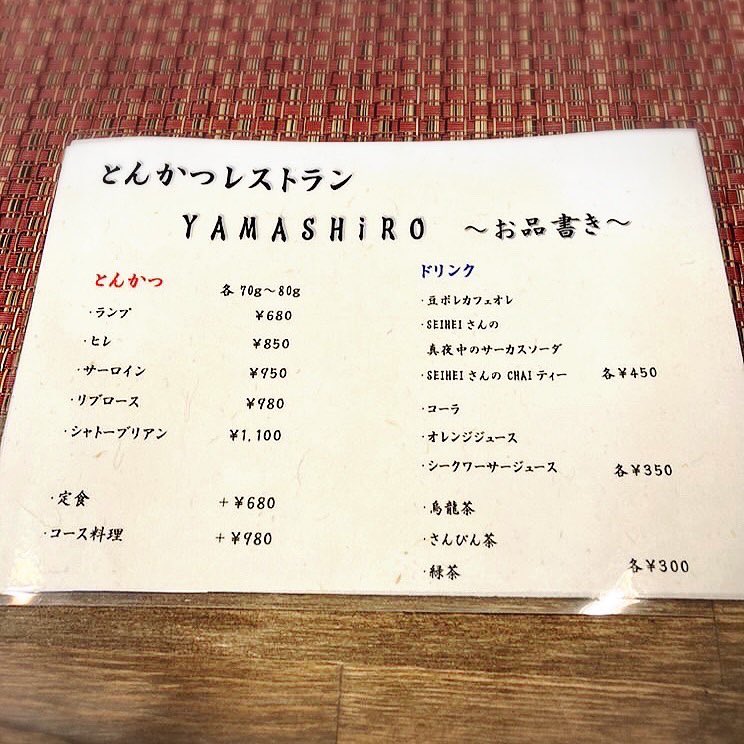 とんかつレストラン
YAMASHiRO ～お品書き～
とんかつ 各70g～80g
・ランプ ¥680
・ヒレ ¥850
・サーロイン ¥950
・リブロース ¥980
・シャトーブリアン ¥1,100
・定食 +¥680
・コース料理 +¥980
ドリンク
・豆ポレカフェオレ
・SEIHEIさんの
真夜中のサーカスソーダ
・SEIHEIさんの CHAIティー 各¥450
・コーラ
・オレンジジュース
・シークワーサージュース 各¥350
・烏龍茶
・さんぴん茶
・緑茶 各¥300